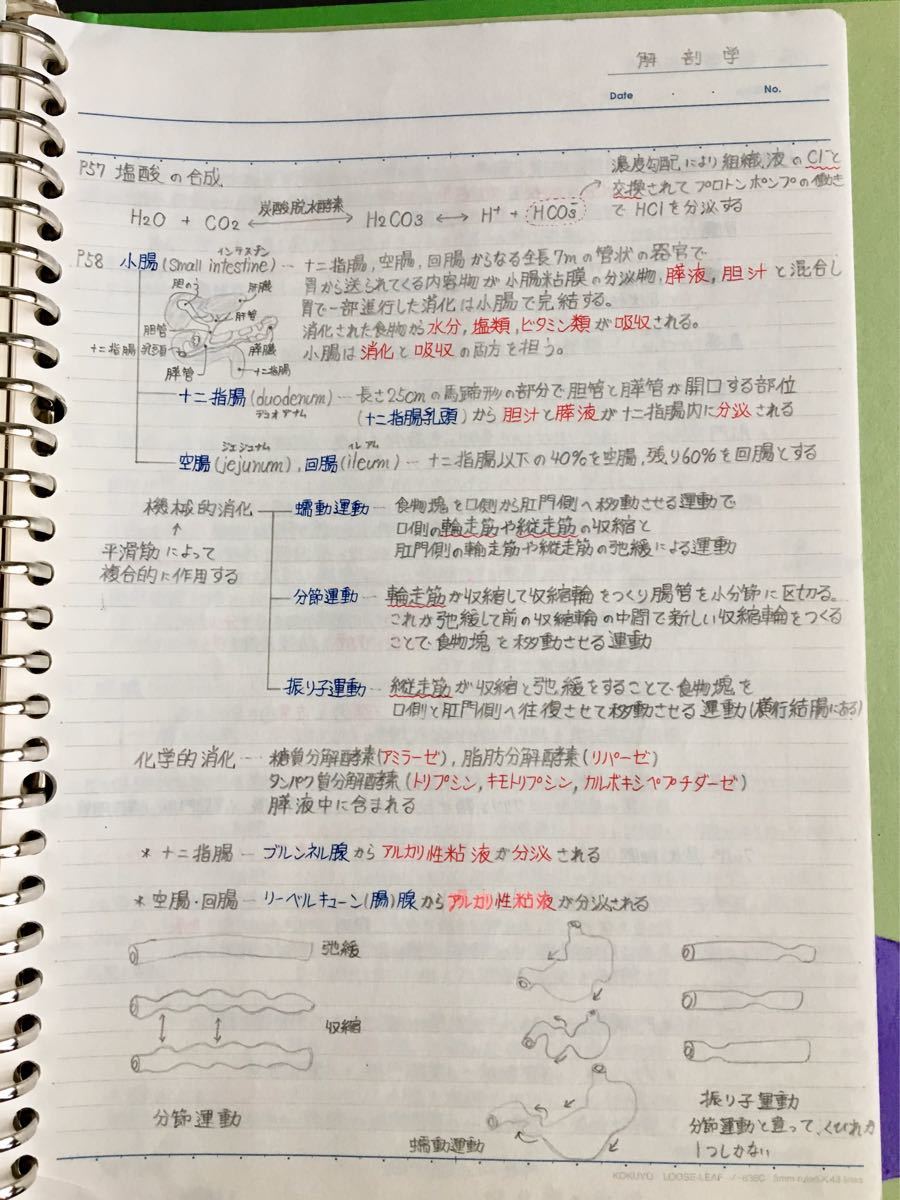 解剖学
Date ・ ・ No.
P57 塩酸の合成
濃度勾配により組織液のCl⁻と
交換されてプロトンポンプの働き
でHClを分泌する
H2O + CO2 炭酸脱水酵素 H2CO3 ⟷ H⁺ + HCO3⁻
インテスチン
P58 小腸(small intestine)… 十二指腸,空腸,回腸からなる全長7mの管状の器官で
胃から送られてくる内容物が小腸粘膜の分泌物,膵液,胆汁と混合し
胃で一部進行した消化は小腸で完結する。
消化された食物から水分,塩類,ビタミン類が吸収される。
小腸は消化と吸収の両方を担う。
胆のう
肝臓
肝管
胆管
十二指腸乳頭
膵臓
膵管
十二指腸
十二指腸(duodenum)―長さ25cmの馬蹄形の部分で胆管と膵管が開口する部位
デュオデナム
(十二指腸乳頭)から胆汁と膵液が十二指腸内に分泌される
ジェジュナム イレアム
空腸(jejunum),回腸(ileum)―十二指腸以下の40%を空腸,残り60%を回腸とする
機械的消化
平滑筋によって
複合的に作用する
蠕動運動―食物塊を口側から肛門側へ移動させる運動で
口側の輪走筋や縦走筋の収縮と
肛門側の輪走筋や縦走筋の弛緩による運動
分節運動―輪走筋が収縮して収縮輪をつくり腸管を小分節に区切る。
これが弛緩して前の収縮輪の中間で新しい収縮輪をつくる
ことで食物塊を移動させる運動
振り子運動―縦走筋が収縮と弛緩をすることで食物塊を
口側と肛門側へ往復させて移動させる運動(横行結腸にある)
化学的消化… 糖質分解酵素(アミラーゼ),脂肪分解酵素(リパーゼ)
タンパク質分解酵素(トリプシン,キモトリプシン,カルボキシペプチダーゼ)
膵液中に含まれる
* 十二指腸―ブルンネル腺からアルカリ性粘液が分泌される
* 空腸・回腸―リーベルキューン(腸)腺からアルカリ性粘液が分泌される
弛緩
収縮
分節運動
蠕動運動
振り子運動
分節運動と違って、くびれが
1つしかない
KOKUYO LOOSE-LEAF